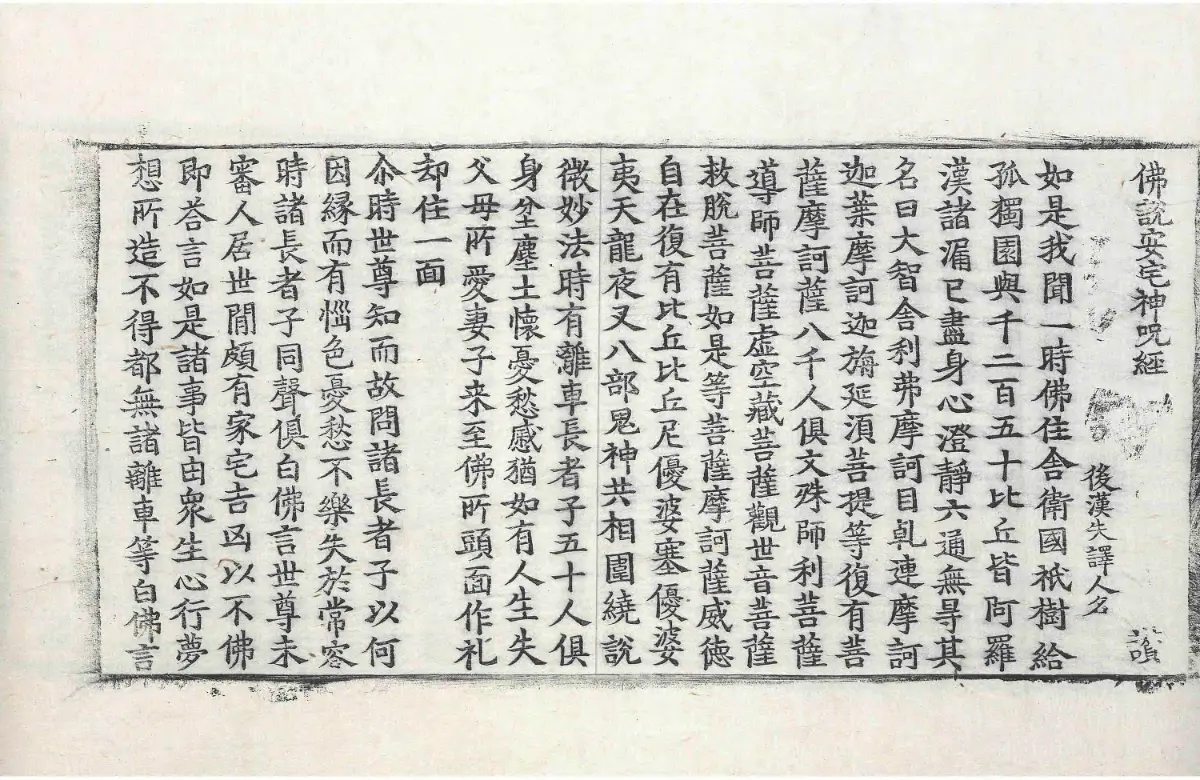 佛說安宅神呪經
後漢失譯人名
如是我聞一時佛住舍衛國祇樹給
孤獨園與千二百五十比丘皆阿羅
漢諸漏已盡身心澄靜六通無㝵其
名曰大智舍利弗摩訶目乹連摩訶
迦葉摩訶迦旃延湏菩提等復有菩
薩摩訶薩八千人俱文殊師利菩薩
導師菩薩虛空藏菩薩觀世音菩薩
救脫菩薩如是等菩薩摩訶薩威德
自在復有比丘比丘尼優婆塞優婆
夷天龍夜叉八部鬼神共相圍繞說
微妙法時有離車長者子五十人俱
身坌塵土懷憂愁慼猶如有人生失
父母所愛妻子来至佛所頭面作礼
却住一面
尒時世尊知而故問諸長者子以何
因緣而有惱色憂愁不樂失於常容
時諸長者子同聲俱白佛言世尊未
審人居世閒頗有家宅吉凶以不佛
即荅言如是諸事皆由衆生心行夢
想所造不得都無諸離車等白佛言